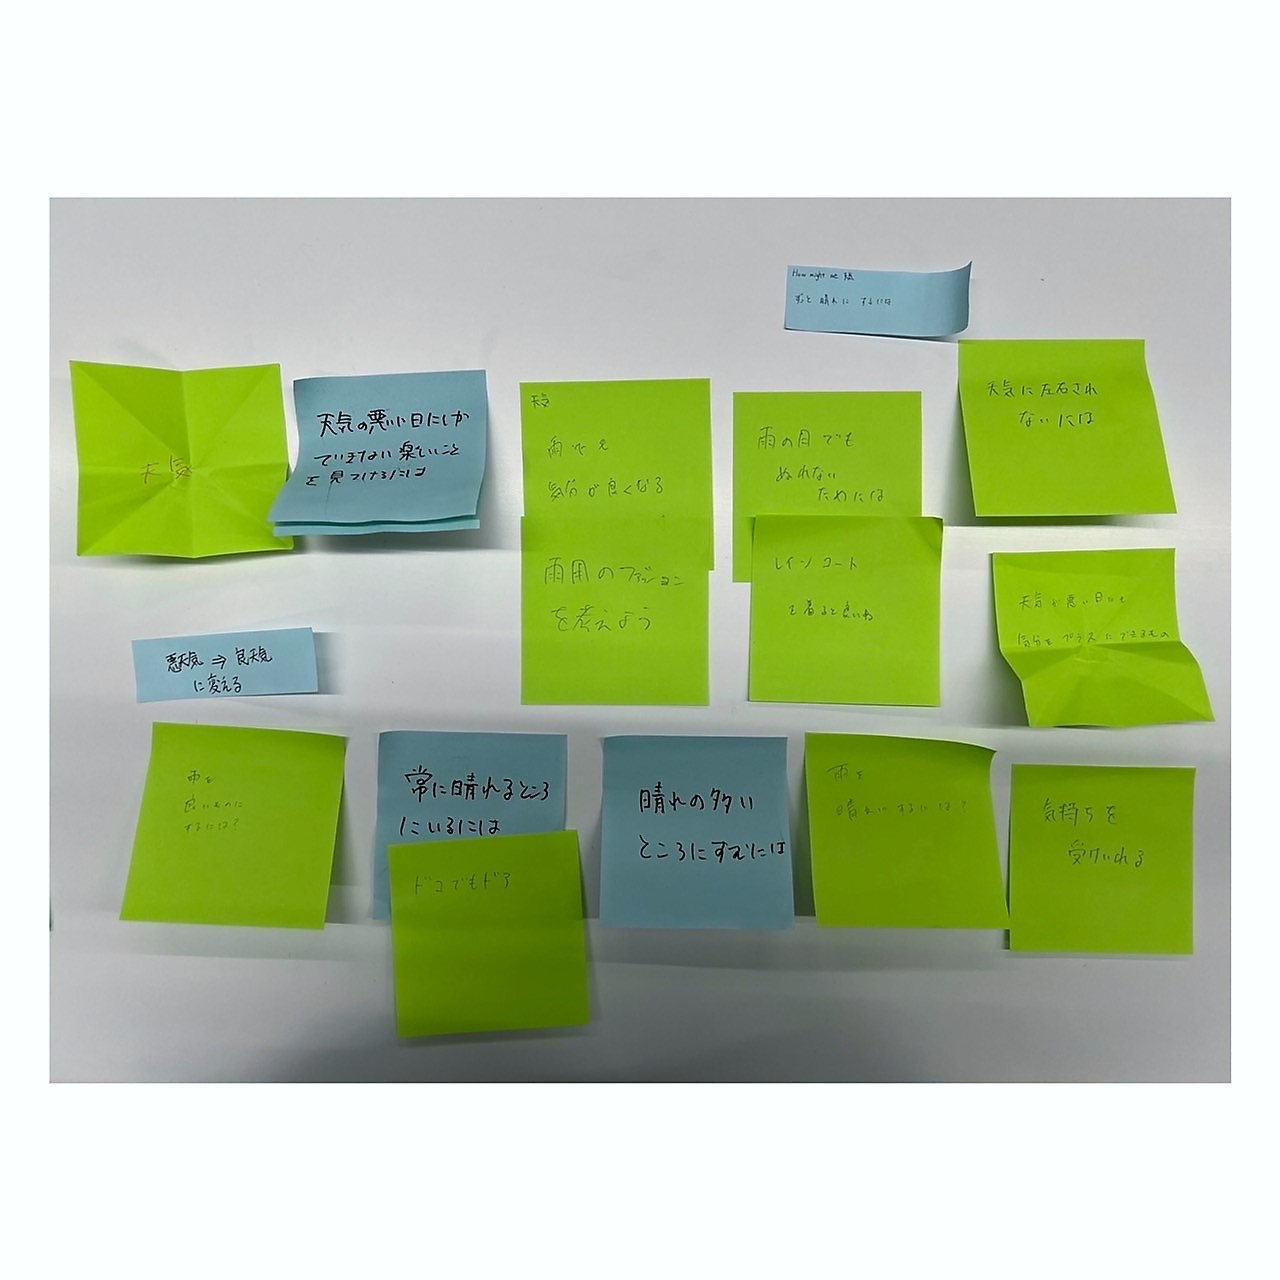 How might we
ずっと 晴れに するには
天気
天気の悪い日にしか
できない楽しいこと
を見つけるには
天気
雨でも
気分が良くなる
雨用のファッション
を考えよう
雨の日でも
ぬれない
ためには
レインコート
を着ると良いね
天気に左右され
ないには
天気が悪い日でも
気分をプラスにできるもの
悪天気 ⇒ 良天気
に変える
雨を
良いものに
するには?
常に晴れるところ
にいるには
ドコでもドア
晴れの多い
ところにすむには
雨を
晴れにするには?
気持ちを
受けいれる